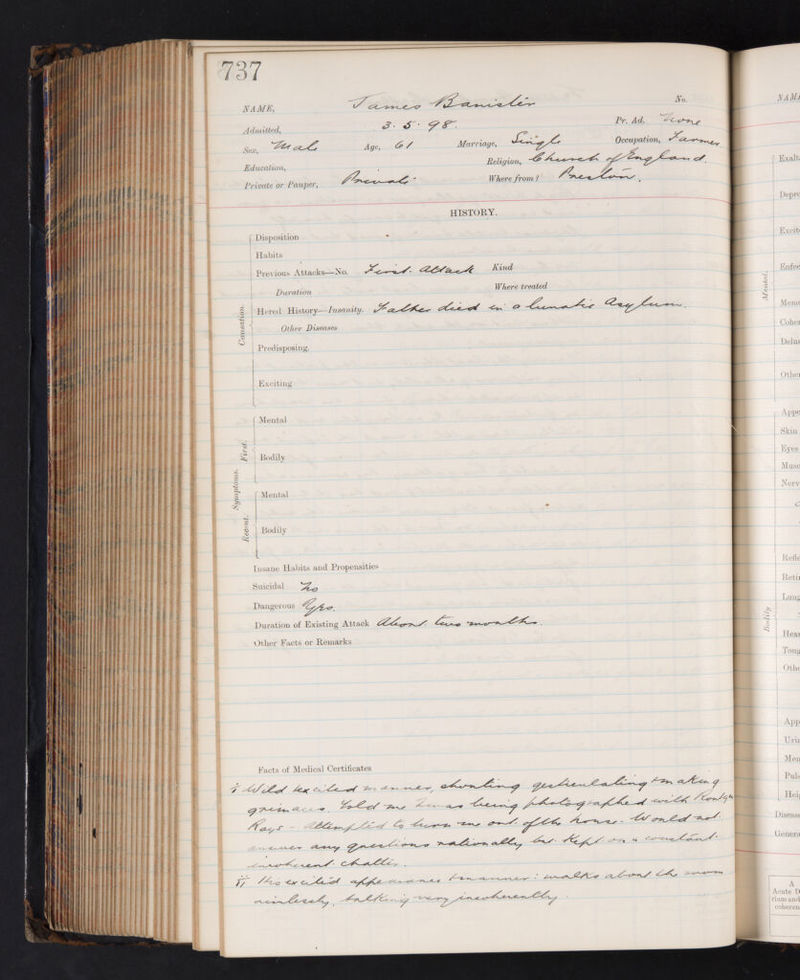 737
NAME, James Banister No.
Admitted, 3. 5. 98. Pr. Ad. None
Sex, Male Age, 61 Marriage, Single Occupation, Farmer
Education, Religion, Church of England.
Private or Pauper, Private Where from? Preston.
HISTORY.
Disposition
Habits
Previous Attacks—No. First attack Kind
Duration Where treated
Causation.
Hered History—Insanity. Father died in a lunatic Asylum.
Other Diseases
Predisposing,
Exciting
Symptoms.
First.
Mental
Bodily
Recent.
Mental
Bodily
Insane Habits and Propensities
Suicidal No
Dangerous Yes.
Duration of Existing Attack About two months.
Other Facts or Remarks
Facts of Medical Certificates
i Wild & excited manner, shouting gesticulating & making
grimaces. Told me I was being photographed with Rontgen
Rays - Attempted to turn me out of the house. Would not
answer any questions rationally but kept on a constant
incoherent chatter.
ii His excited appearance & manner: walks about the room
aimlessly, talking very incoherently.
NAM
Exalt
Depre
Excit
Enfee
Mental.
Mem
Coher
Delus
Other
Appe
Skin
Eyes
Musc
Nerv
Refle
Reti
Lung
Bodily
Hear
Tong
Othe
App
Urin
Men
Puls
Heig
Diseas
Genera
A
Acute D
rium and
coheren